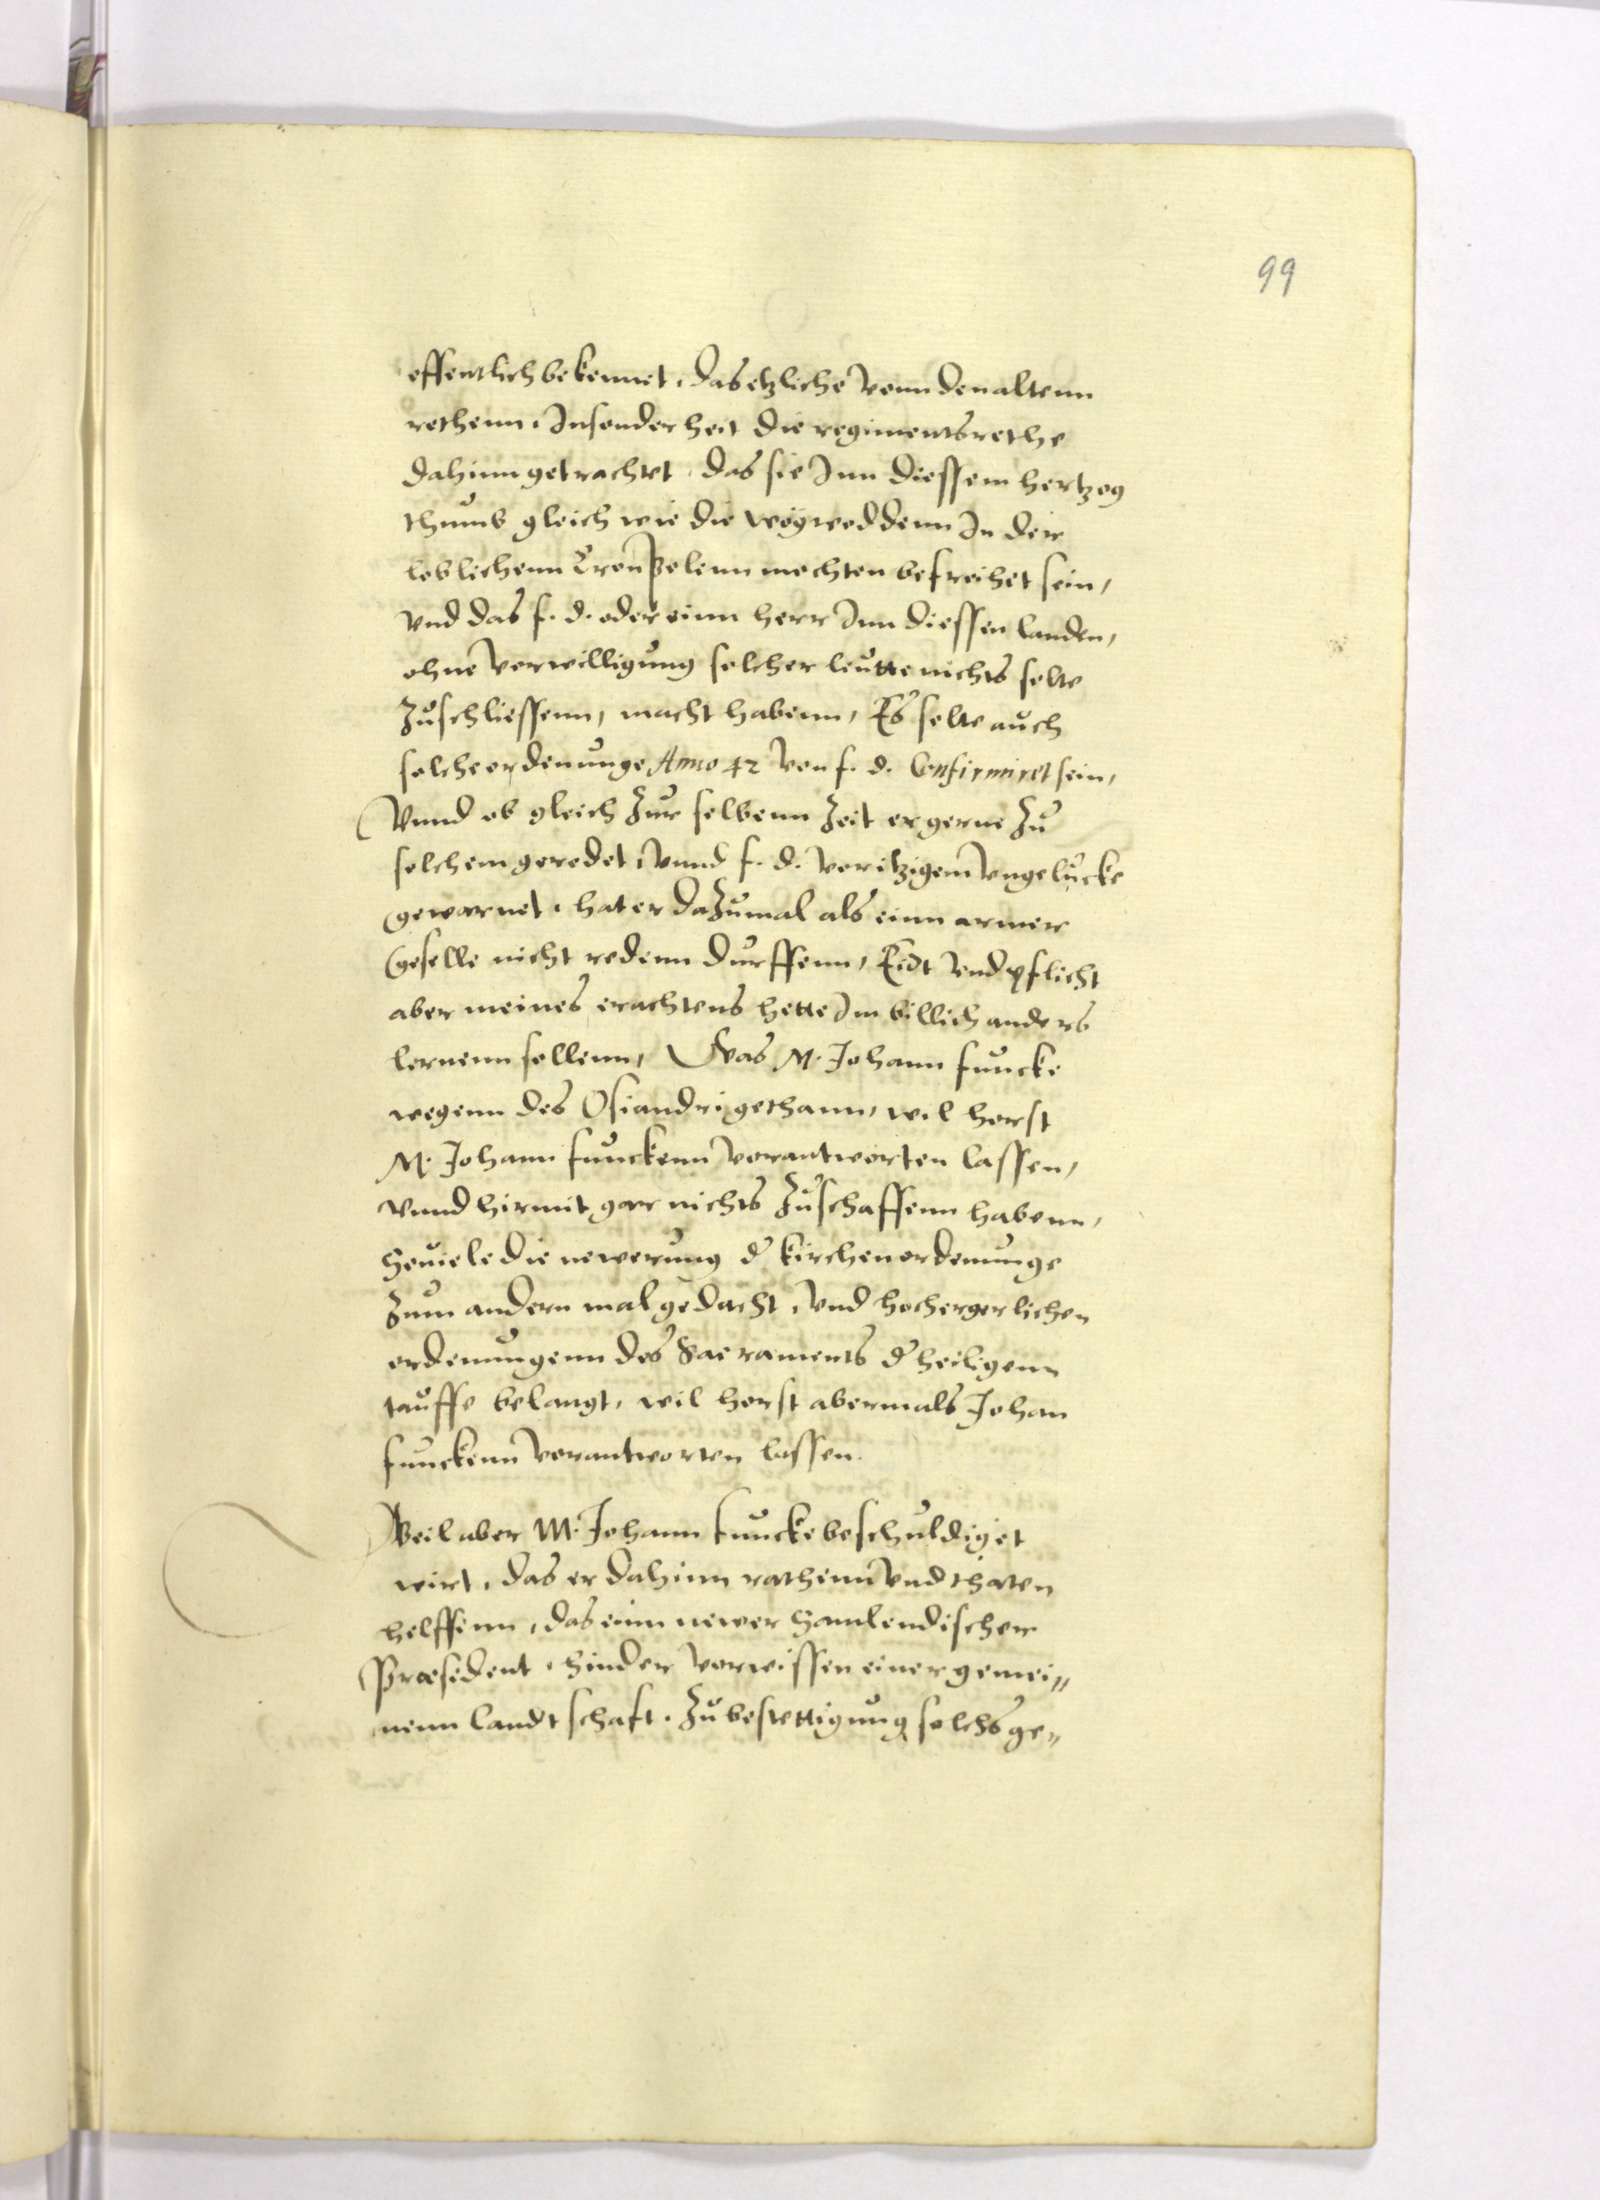 99
offentlich bekennet, das etzliche vonn den altenn
rethenn, Insonderheit die regimentsrethe
dahinn getrachtet, das sie Inn diessem hertzog
thumb gleich wie die woywoddenn In der
loblichenn Cron Polenn mochten befreihet sein,
vnd das f. d. oder einn herr Inn diessen landen,
ohne verwilligung solcher leutte nichts solte
zuschliessenn, macht habenn, Es solte auch
solche ordenunge Anno 42 von f. d. Confirmiret sein,
Vnnd ob gleich zur selbenn zeit er gerne zu
solchem geredet, vnnd f. d. vor itzigem vngelucke
gewarnet, hat er dazumal als einn armer
geselle nicht redenn durffenn, Eidt vnd pflicht
aber meines erachtens hette Im billich anders
lernenn sollenn, Was M. Johann funcke
wegenn des Osiandri gethann, wil horst
M. Johann funckenn verantworten lassen,
vnnd hirmit gar nichts zuschaffenn habenn,
Souiele die newerung d' kirchenordenunge
zum andern mal gedacht, vnd hochergerlichen
ordenungenn des Sacraments d' heiligenn
tauffe belangt, wil horst abermals Johan
funckenn verantworten lassen.
Weil aber M. Johann funcke beschuldiget
wirt, das er dahinn rathenn vnd thaten
helffenn, das einn newer Samlendischer
Præsident, hinder vorwissen einer gemei„
nenn landtschaft, zu bestettigung solchs ge„